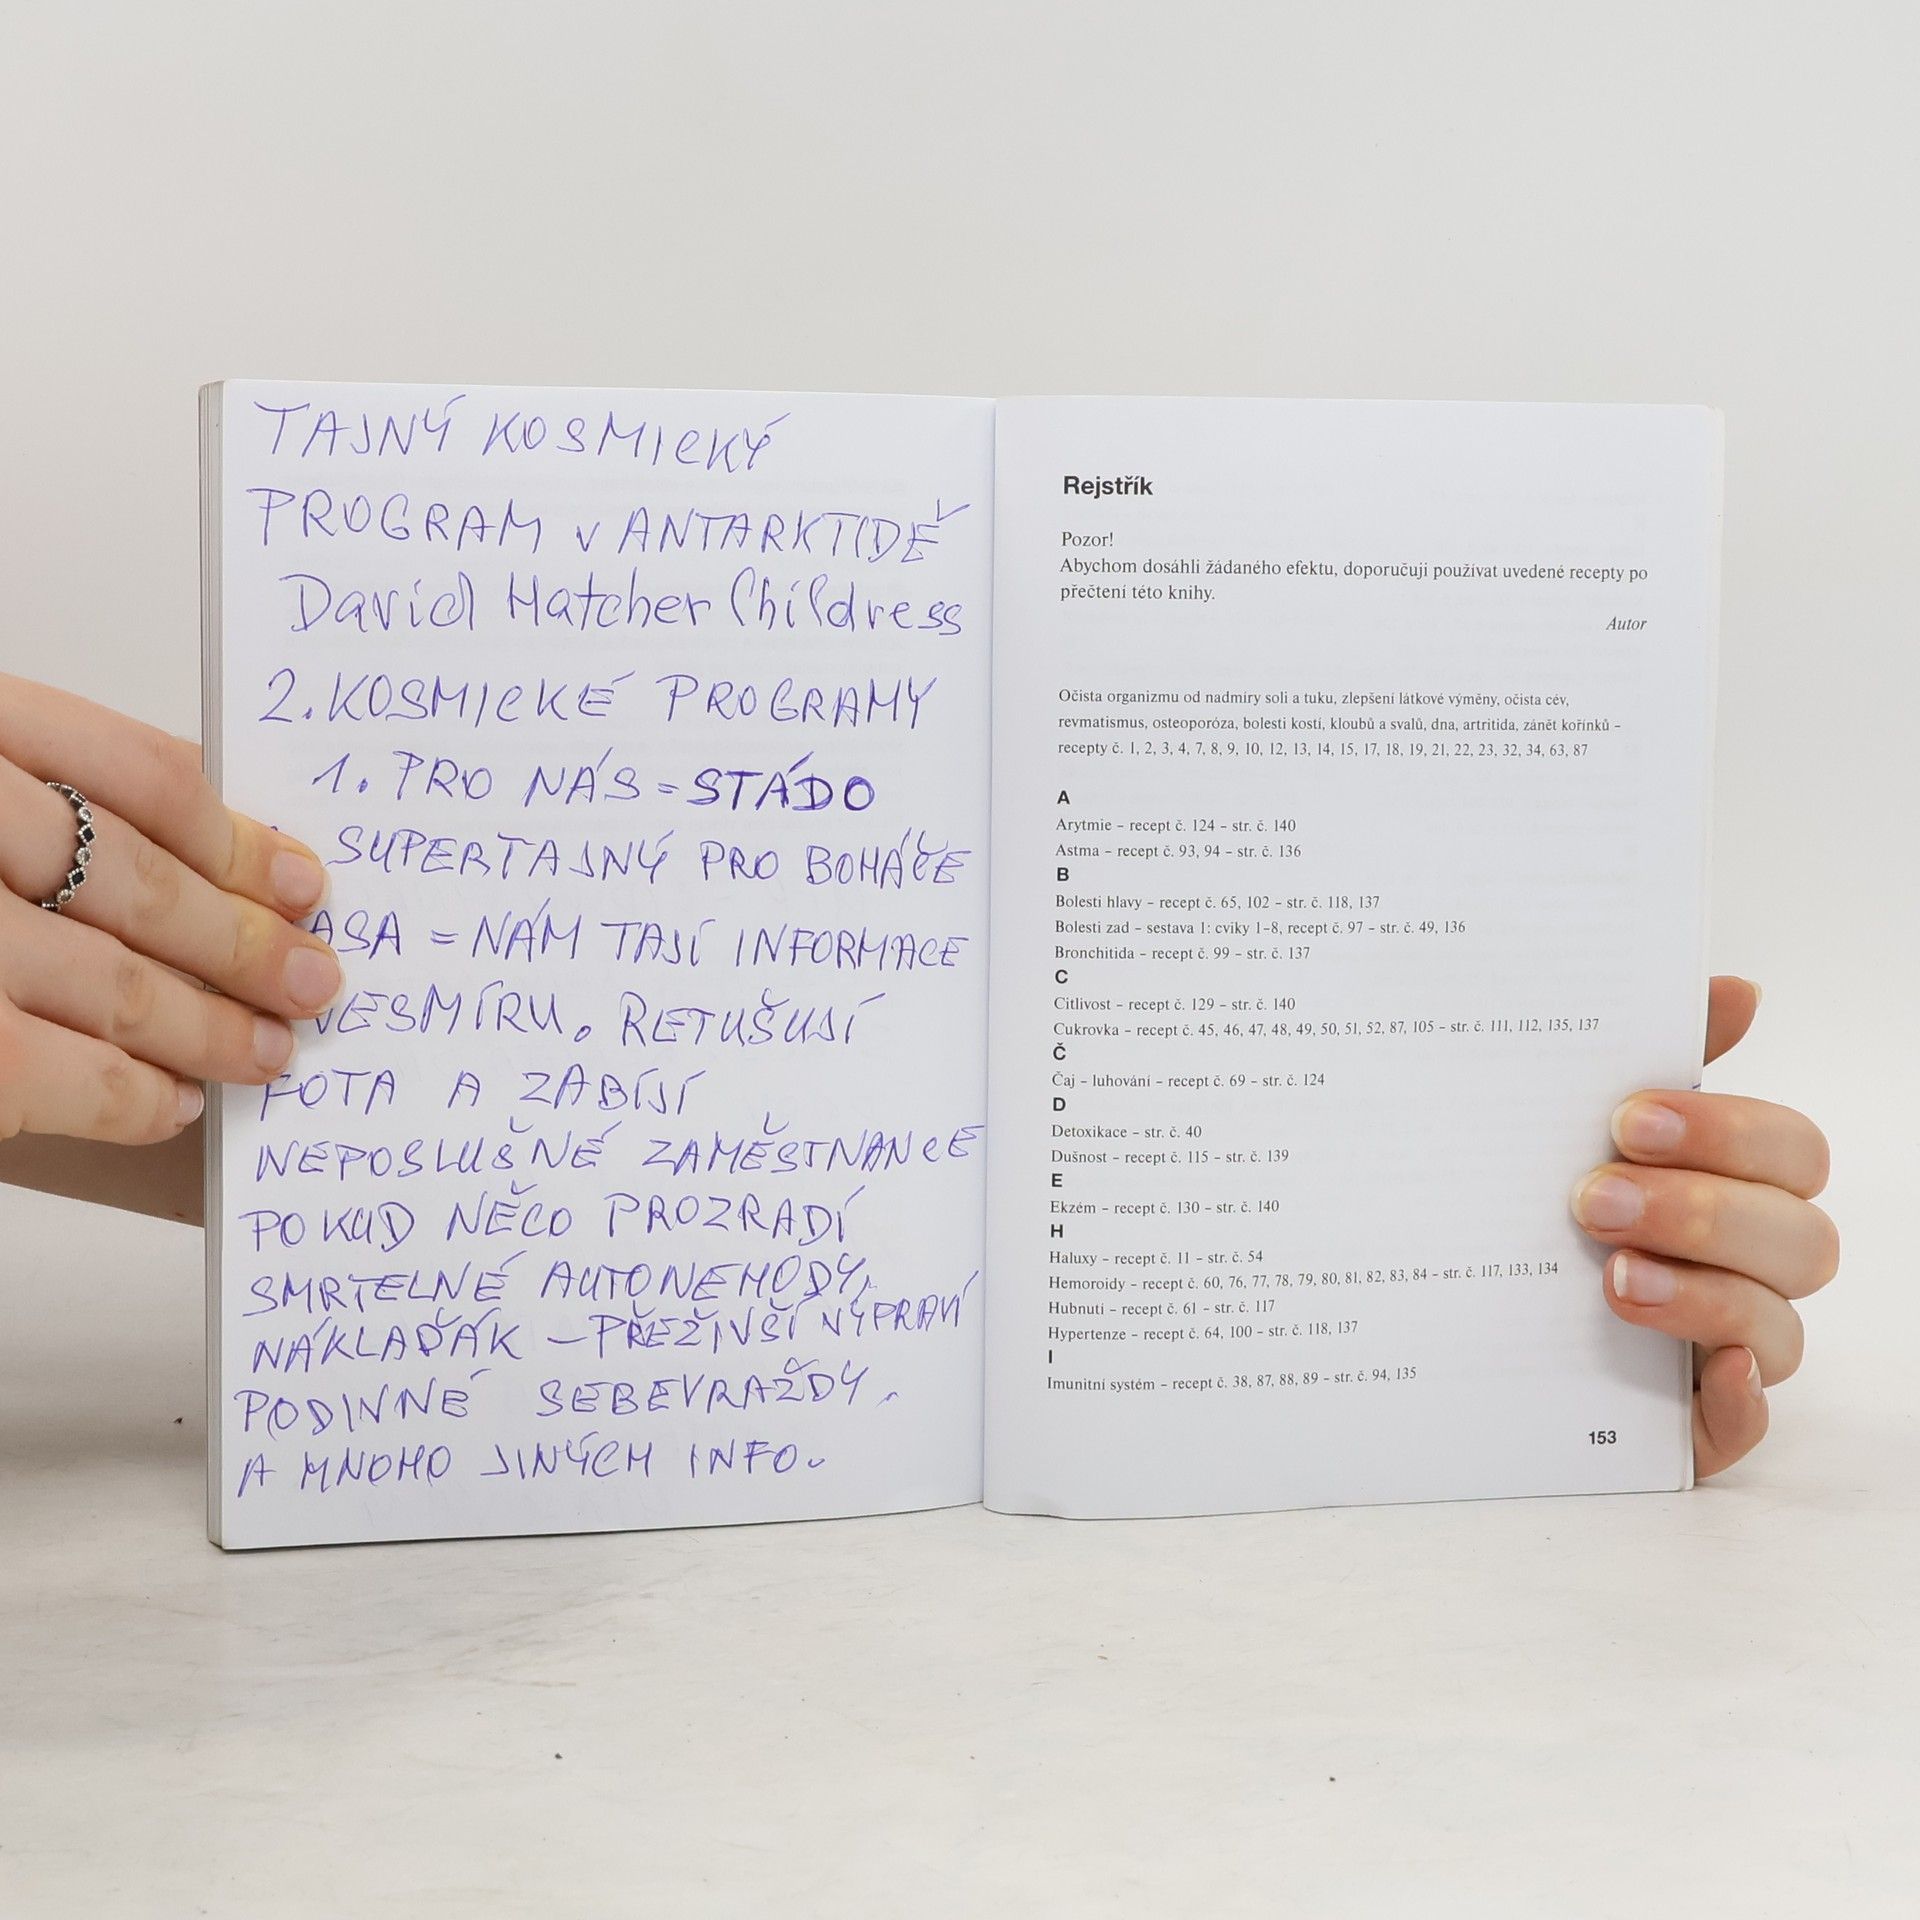 TAJNÝ KOSMICKÝ
PROGRAM V ANTARKTIDĚ
David Hatcher Childress
2. KOSMICKÉ PROGRAMY
1. PRO NÁS = STÁDO
SUPERTAJNÝ PRO BOHÁČE
ASA = NÁM TAJÍ INFORMACE
VESMÍRU. RETUŠUJÍ
FOTA A ZABÍJÍ
NEPOSLUŠNÉ ZAMĚSTNANCE
POKUD NĚCO PROZRADÍ
SMRTELNÉ AUTONEHODY,
NÁKLAĎÁK – PŘEŽIVŠÍ VYPRAVÍ
PODIVNÉ SEBEVRAŽDY,
A MNOHO JINÝCH INFO.
Rejstřík
Pozor!
Abychom dosáhli žádaného efektu, doporučuji používat uvedené recepty po
přečtení této knihy.
Autor
Očista organizmu od nadmíry soli a tuku, zlepšení látkové výměny, očista cév,
revmatismus, osteoporóza, bolesti kostí, kloubů a svalů, dna, artritida, zánět kořínků –
recepty č. 1, 2, 3, 4, 7, 8, 9, 10, 12, 13, 14, 15, 17, 18, 19, 21, 22, 23, 32, 34, 63, 87
A
Arytmie – recept č. 124 – str. č. 140
Astma – recept č. 93, 94 – str. č. 136
B
Bolesti hlavy – recept č. 65, 102 – str. č. 118, 137
Bolesti zad – sestava 1: cviky 1–8, recept č. 97 – str. č. 49, 136
Bronchitida – recept č. 99 – str. č. 137
C
Citlivost – recept č. 129 – str. č. 140
Cukrovka – recept č. 45, 46, 47, 48, 49, 50, 51, 52, 87, 105 – str. č. 111, 112, 135, 137
Č
Čaj – luhování – recept č. 69 – str. č. 124
D
Detoxikace – str. č. 40
Dušnost – recept č. 115 – str. č. 139
E
Ekzém – recept č. 130 – str. č. 140
H
Haluxy – recept č. 11 – str. č. 54
Hemoroidy – recept č. 60, 76, 77, 78, 79, 80, 81, 82, 83, 84 – str. č. 117, 133, 134
Hubnutí – recept č. 61 – str. č. 117
Hypertenze – recept č. 64, 100 – str. č. 118, 137
I
Imunitní systém – recept č. 38, 87, 88, 89 – str. č. 94, 135
153